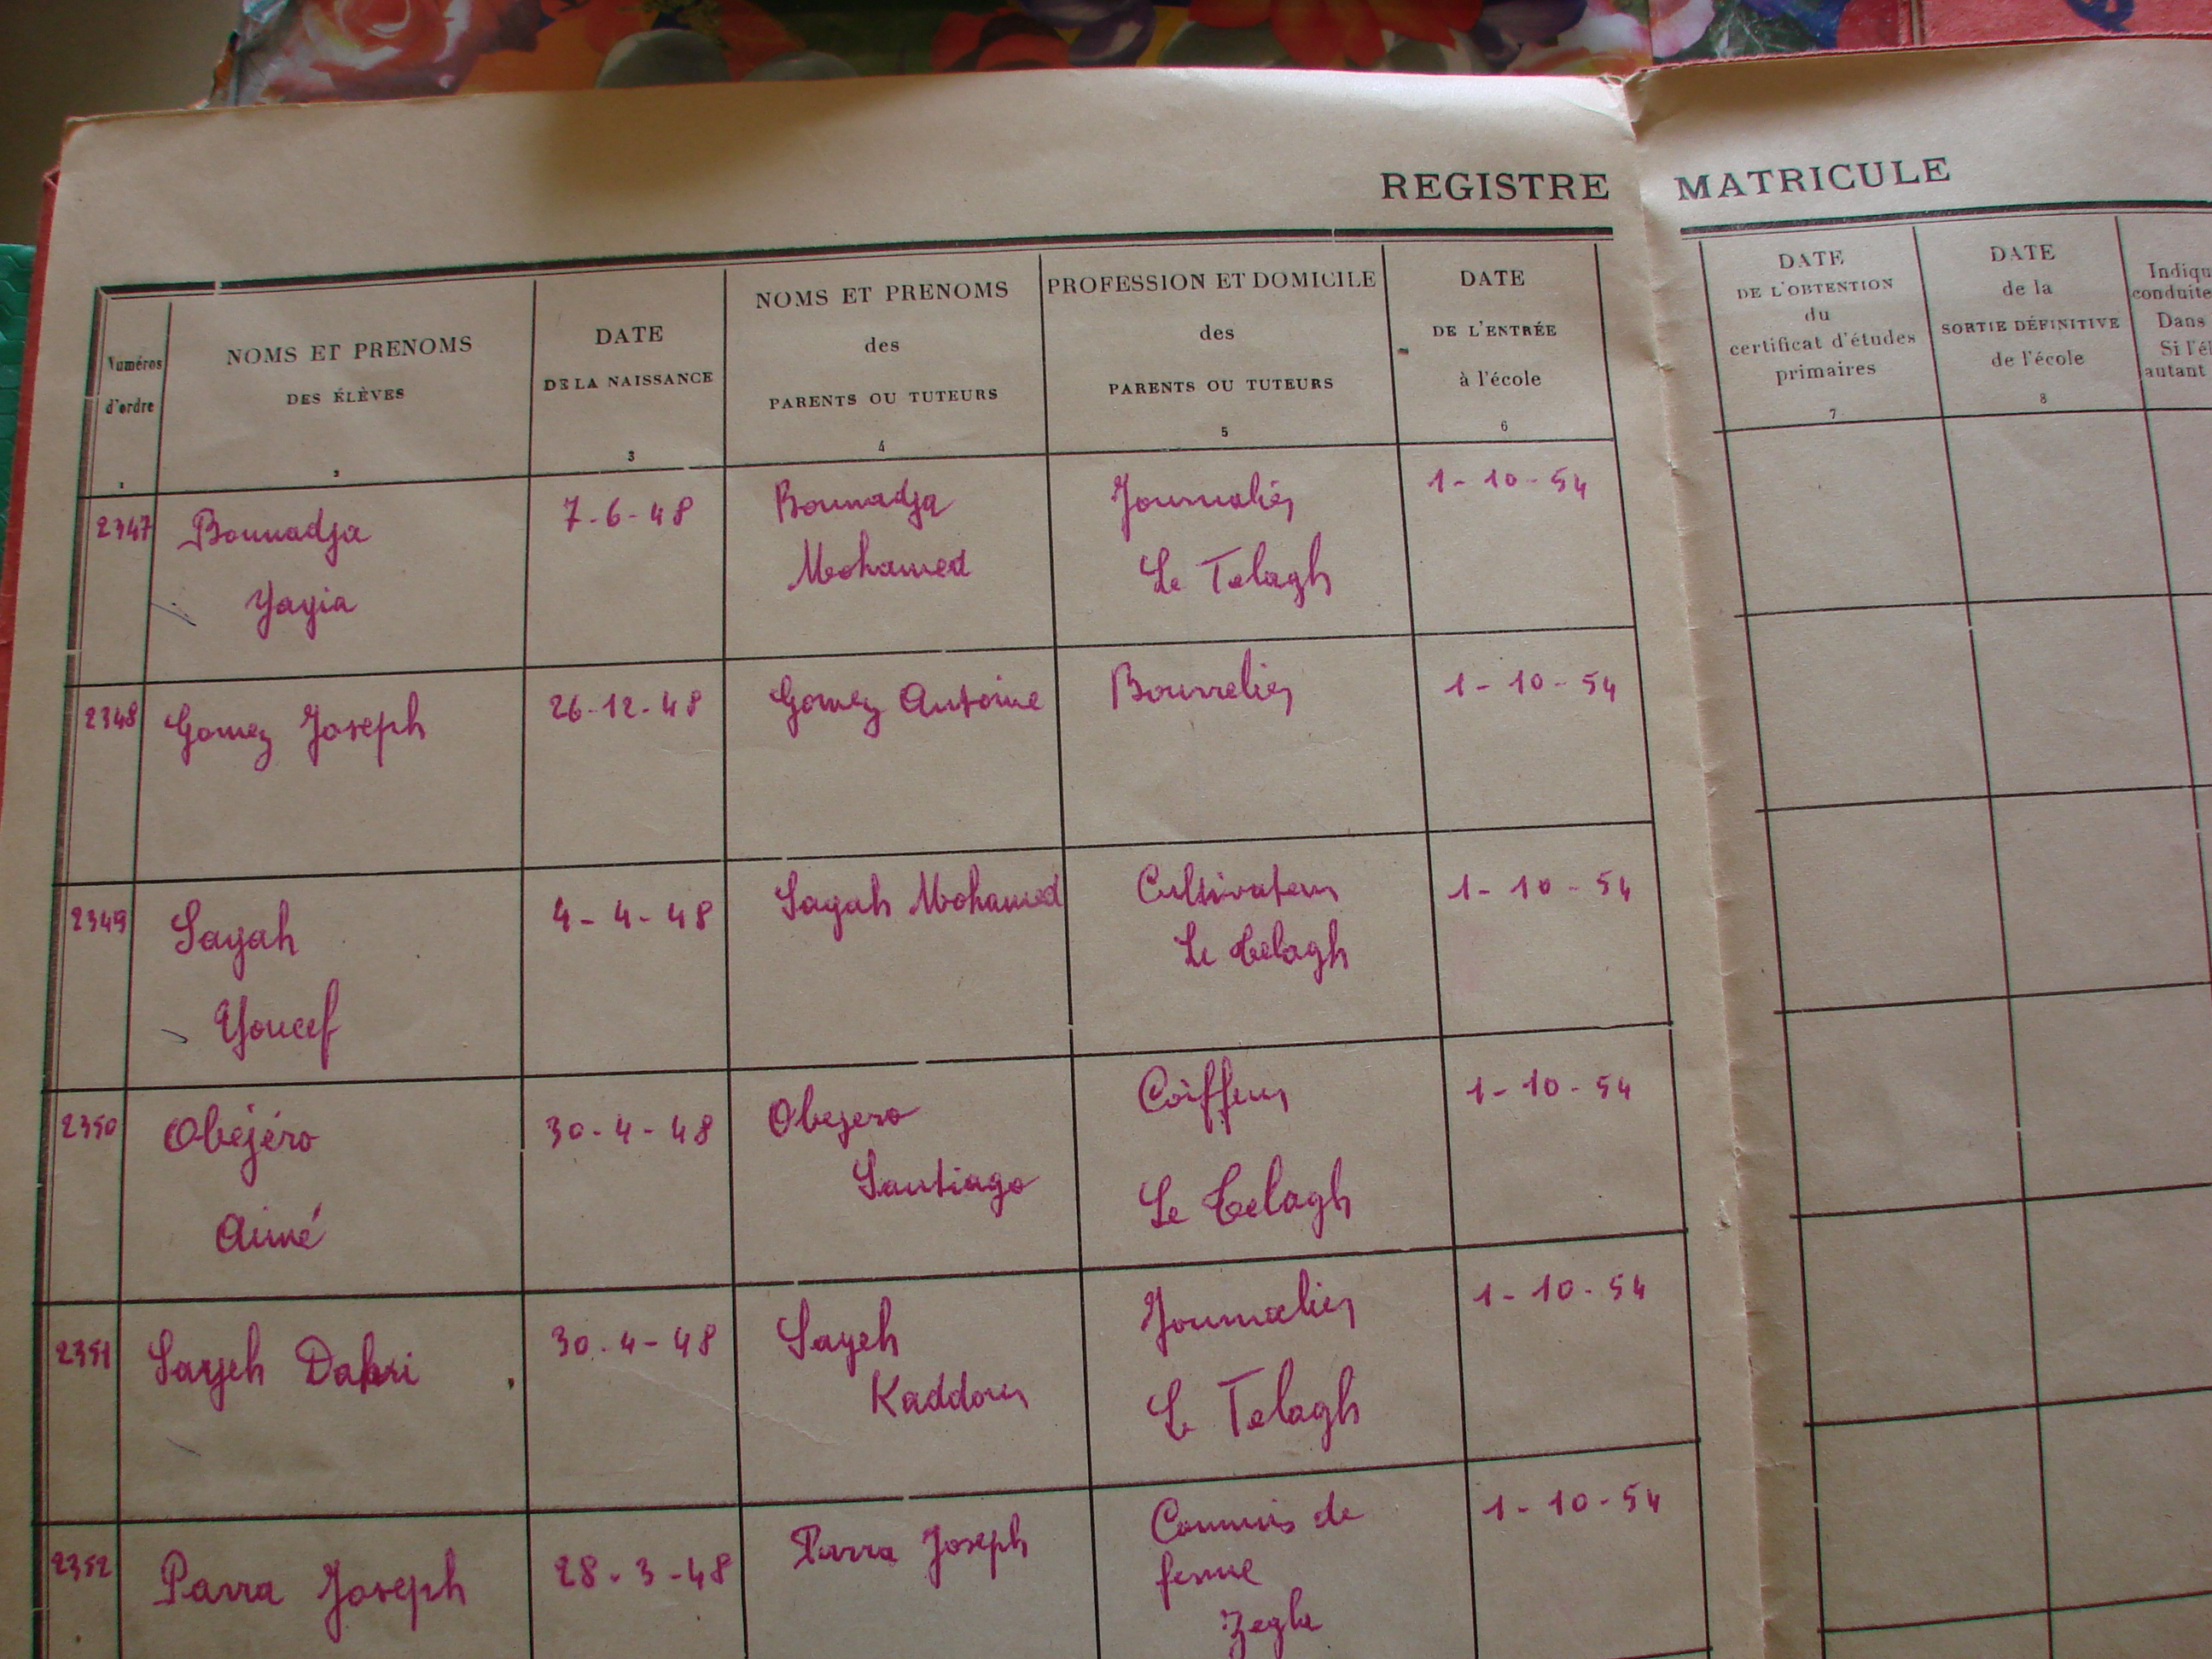 REGISTRE MATRICULE
Numéros
d'ordre
1
NOMS ET PRENOMS
DES ÉLÈVES
2
DATE
DE LA NAISSANCE
3
NOMS ET PRENOMS
des
PARENTS OU TUTEURS
4
PROFESSION ET DOMICILE
des
PARENTS OU TUTEURS
5
DATE
DE L'ENTRÉE
à l'école
6
DATE
DE L'OBTENTION
du
certificat d'études
primaires
7
DATE
de la
SORTIE DÉFINITIVE
de l'école
8
Indiqu
conduite
Dans
Si l'él
autant
2347
Bounadja
Yayia
7-6-48
Bounadja
Mohamed
Journalier
Le Telagh
1-10-54
2348
Gomez Joseph
26-12-48
Gomez Antoine
Bourrelier
1-10-54
2349
Sayah
Youcef
4-4-48
Sayah Mohamed
Cultivateur
Le Telagh
1-10-54
2350
Obéjéro
Aimé
30-4-48
Obejero
Santiago
Coiffeur
Le Telagh
1-10-54
2351
Sayeh Dahri
30-4-48
Sayeh
Kaddour
Journalier
Le Telagh
1-10-54
2352
Parra Joseph
28-3-48
Parra Joseph
Commis de
ferme
Zegla
1-10-54